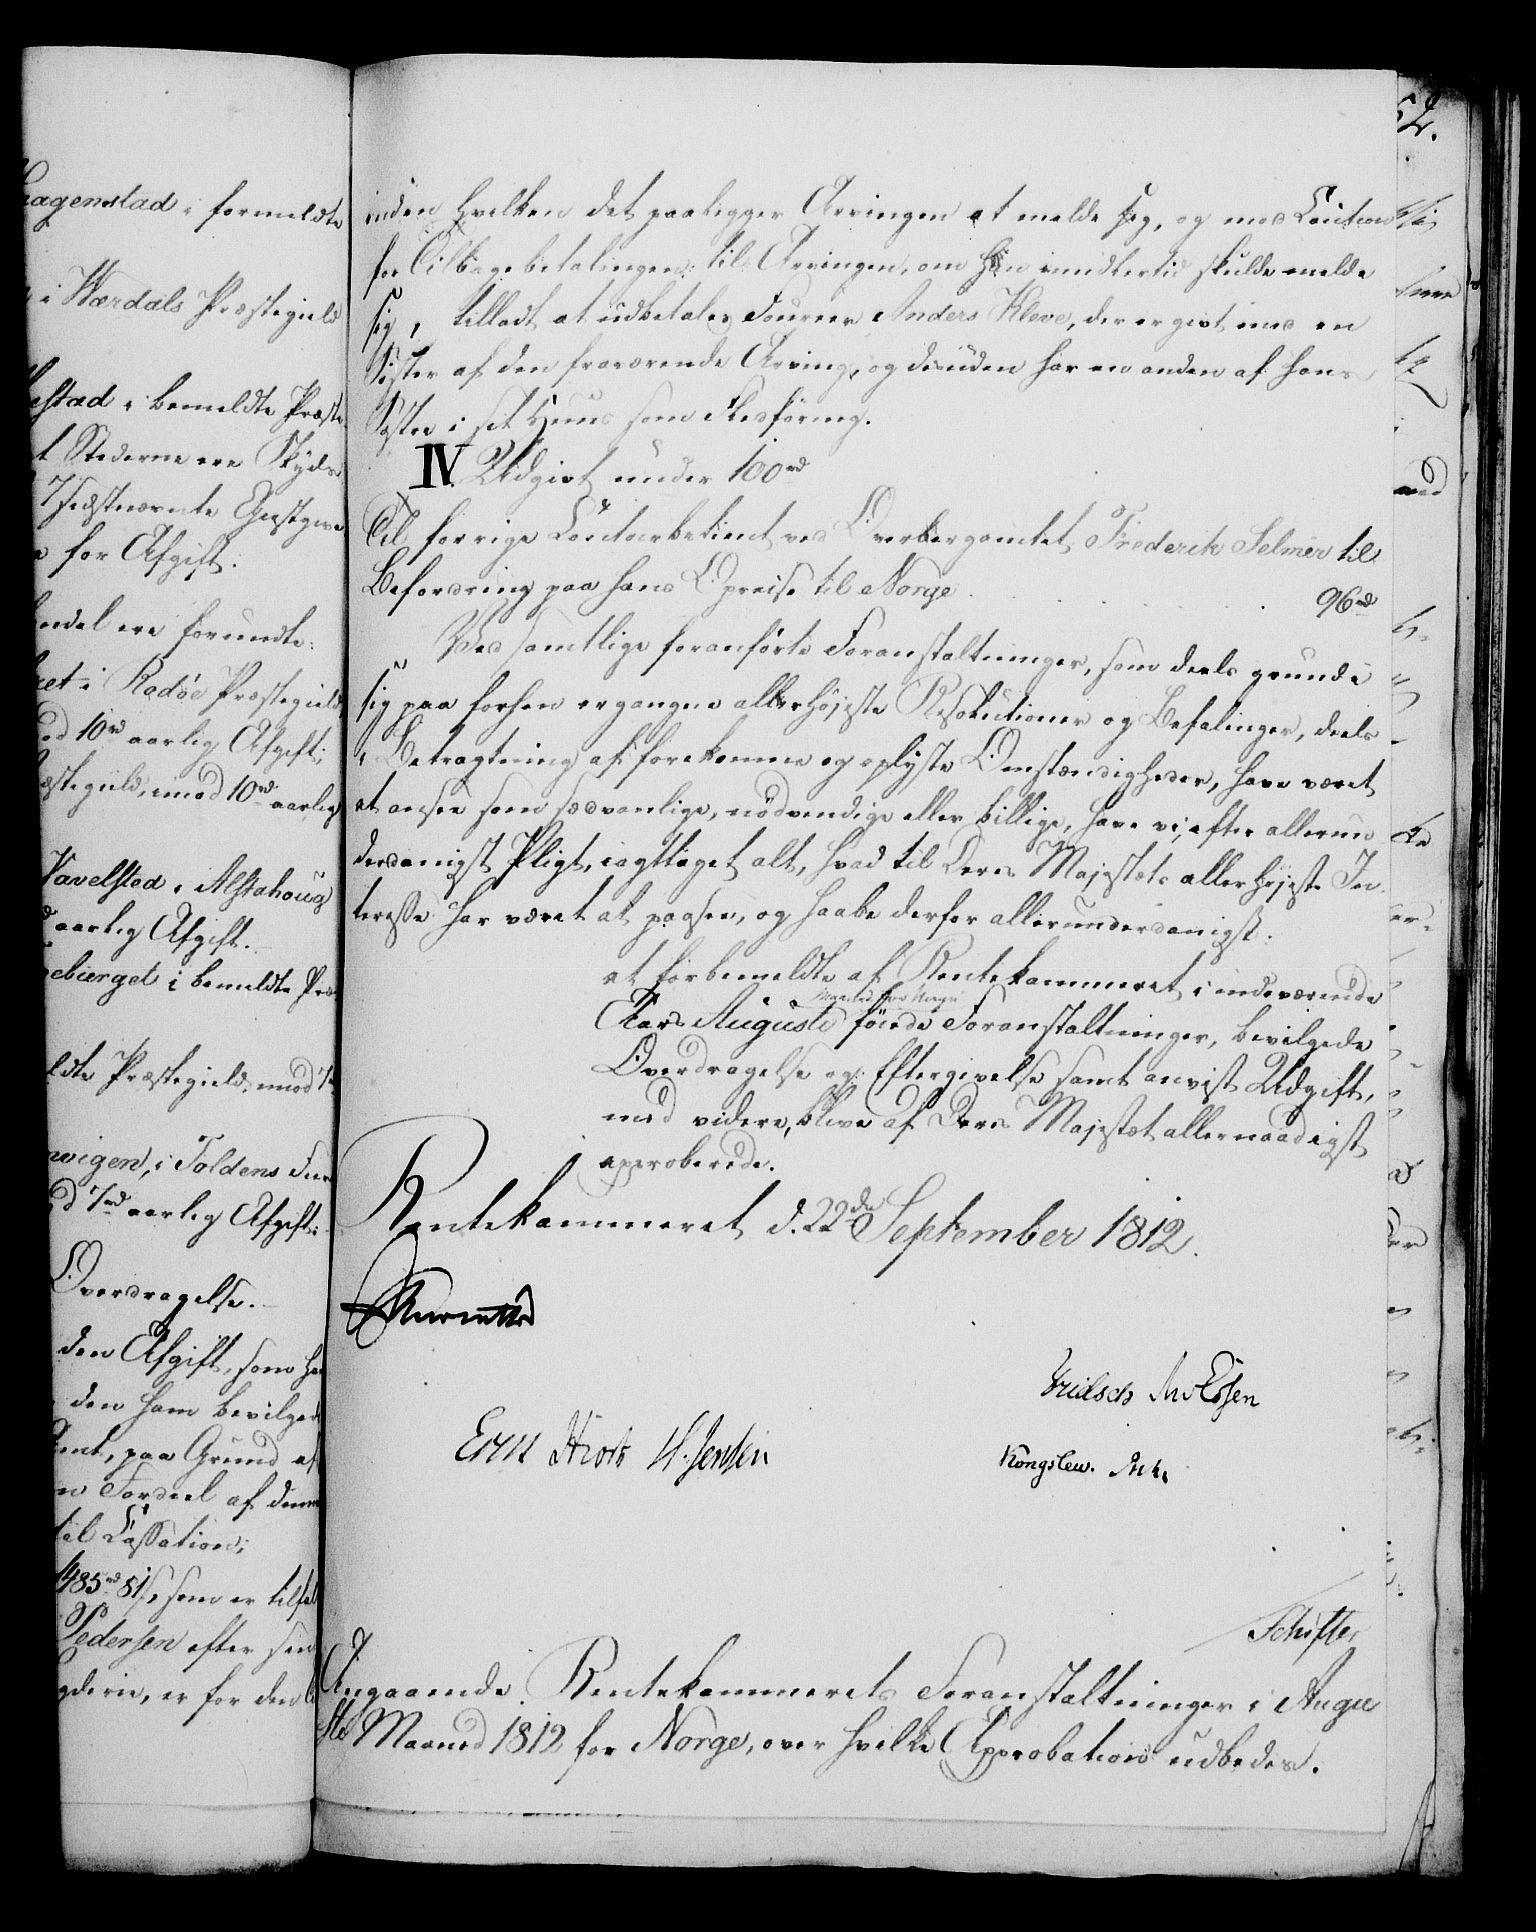 hagenstad i formeldte
i Værdals Præstegield
estad i bemeldte Præste
t Stederne ere Skyds
7 sidstnævnte Gjestgive
for Afgift.
ere forundte:
i Radøe Præstegield,
10rd aarlig Afgift;
imod 10rd aarlig
Alstahoug
aarlig Afgift.
ebierget i bemeldte Præ
ldte Præstegield, imod 7rd
wigen, i Toldens
7rd aarlig Afgift:
Overdragelse.
den Afgift, som ha
den ham bevilgede
paa Grund af
Fordeel af denne
til Cassation;
som er tilfal
Pedersen efter sin
er for den
52.
inden hvilken det paaligger Arvingen at melde sig, og mod Caution
for Tilbagebetalingen til Arvingen, om han imidlertid skulde melde
sig, tilladt at udbetales Fourer Anders Kleve, der er givt med en
Søster af den fraværende Arving, og desuden har en anden af hans
Søstre i sit Huus som Reisføring.
IV. Udgivt under 100rd
Til forrige Contoirbetient ved Overbergamtet Frederik Selmer til
Befordring paa hans Opreise til Norge . . . 96rd
Ved samtlige foranførte Foranstaltninger, som deels grunde
sig paa forhen ergangne allerhøjeste Resolutioner og Befalinger, deels
i Betragtning af forekomne og oplyste Omstændigheder, have været
at ansee som sædvanlige, nødvendige eller billige, have vi, efter allerun
derdanigst Pligt, iagttaget alt, hvad til Deres Majestæts allerhøjeste In
teresse har været at paasee, og haabe derfor allerunderdanigst:
at forbemeldte af Rentekammeret i indeværende
Maaned for Norge
Aars Augusti føiede Foranstaltninger, bevilgede
Overdragelse og Eftergivelse samt anvist Udgift,
med videre, blive af Deres Majestæt allernaadigst
approberede.
Rentekammeret d. 22de September 1812.
Erm Hiorth H. Jensen
Kongslew.
Schifter
Angaaende Rentekammerets Foranstaltninger i Augu
sti Maaned 1812 for Norge, over hvilke Approbation udbedes.